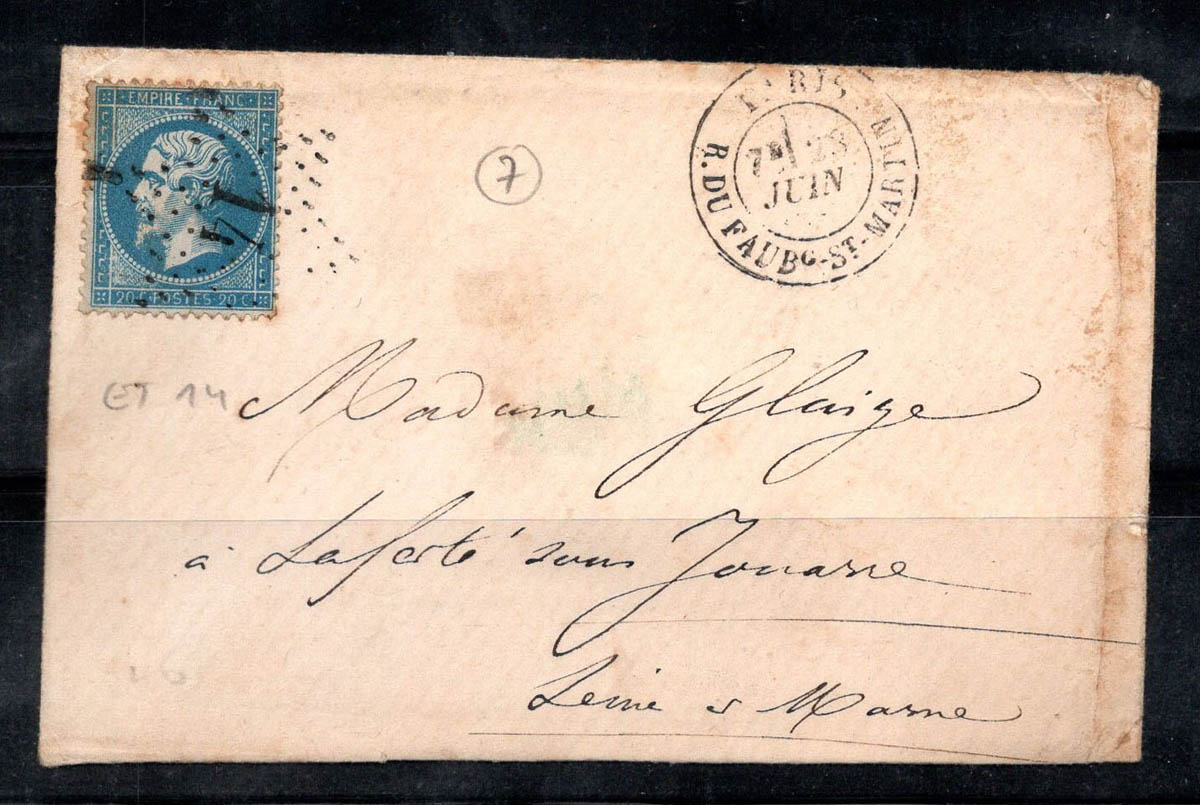 EMPIRE · FRANC ·
20 C POSTES 20 C
14
7
PARIS
R. DU FAUBG-ST-MARTIN
7E 28
JUIN
ET 14
Madame Glaize
à Laferté sous Jouarre
Seine & Marne